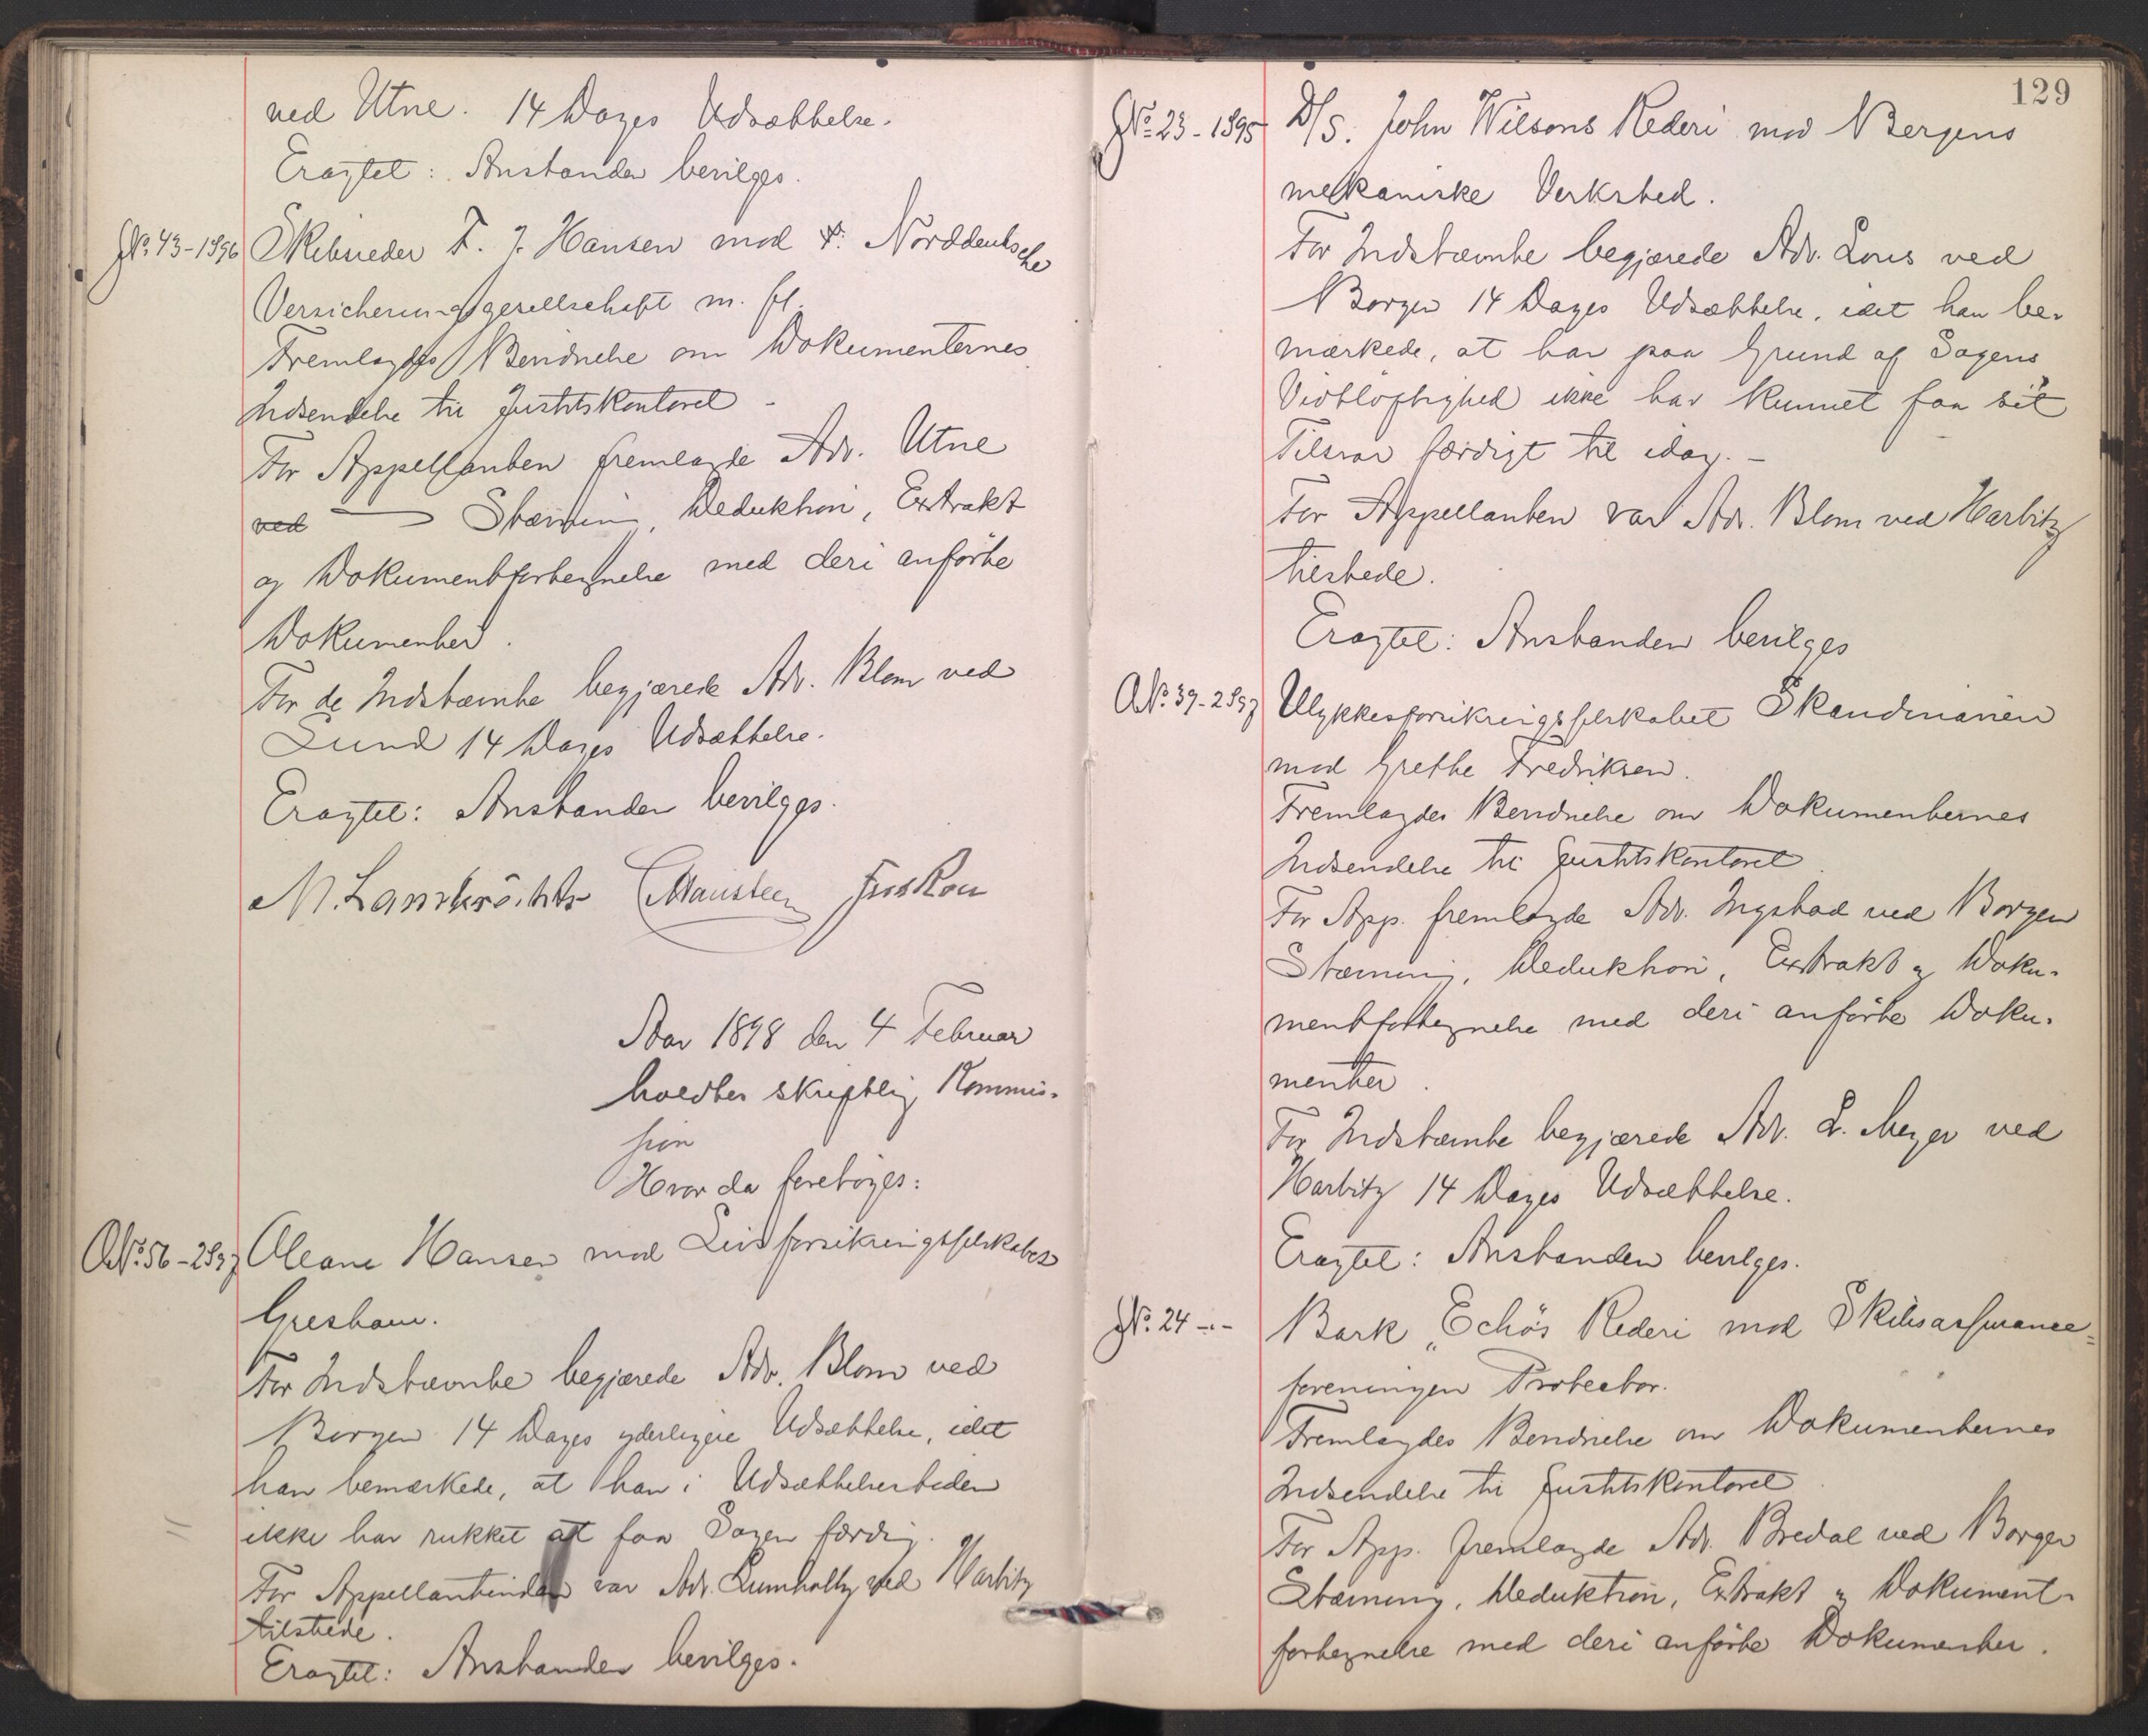 ved Utne. 14 Dages Udsættelse.
Eragtet: Anstanden bevilges.
JN:o 43-1896 Skibsreder F. J. Hansen mod Norddeutsche
Versicherungsgesellschaft m. fl.
Fremlagdes Bevidnelse om Dokumenternes
Indsendelse til Justitskontoret -
For Appellanten fremlagde Adv. Utne
ved Stævning, Deduktion, Extrakt
og Dokumentfortegnelse med deri anførte
Dokumenter.
For de Indstævnte begjærede Adv. Blom ved
Lund 14 Dages Udsættelse.
Eragtet: Anstanden bevilges.
Aar 1898 den 4 Februar
holdtes skriftlig Kommis-
sion
Hvor da foretoges:
AN:o 56-2/97 Oleane Hansen mod Livsforsikringsselskabet
Gresham.
For Indstævnte begjærede Adv. Blom ved
Borgen 14 Dages yderligere Udsættelse, idet
han bemærkede, at han i Udsættelsestiden
ikke har rukket at faa Sagen færdig.
For Appellantinden var Adv. Lumholtz ved Harbitz
tilstede.
Eragtet: Anstanden bevilges.
129
JN:o 23-1895 D/S. John Wilsons Rederi mod Bergens
mekaniske Verksted.
For Indstævnte begjærede Adv. Lous ved
Borgen 14 Dages Udsættelse, idet han be-
mærkede, at han paa Grund af Sagens
Vidtløftighed ikke har kunnet faa sit
Tilsvar færdigt til idag. -
For Appellanten var Adv. Blom ved Harbitz
tilstede.
Eragtet: Anstanden bevilges
AN:o 39-2/97 Ulykkesforsikringsselskabet Skandinavien
mod Grethe Fredriksen.
Fremlagdes Bevidnelse om Dokumenternes
Indsendelse til Justitskontoret.
For App. fremlagde Adv. Ingstad ved Borgen
Stævning, Deduktion, Extrakt og Doku-
mentfortegnelse med deri anførte Doku-
menter.
For Indstævnte begjærede Adv. L. Meyer ved
Harbitz 14 Dages Udsættelse.
Eragtet: Anstanden bevilges.
JN:o 24 -"- Bark "Echo's Rederi mod Skibsassurance-
foreningen Protector.
Fremlagdes Bevidnelse om Dokumenternes
Indsendelse til Justitskontoret
For App. fremlagde Adv. Bredal ved Borgen
Stævning, Deduktion, Extrakt og Dokument-
fortegnelse med deri anførte Dokumenter.